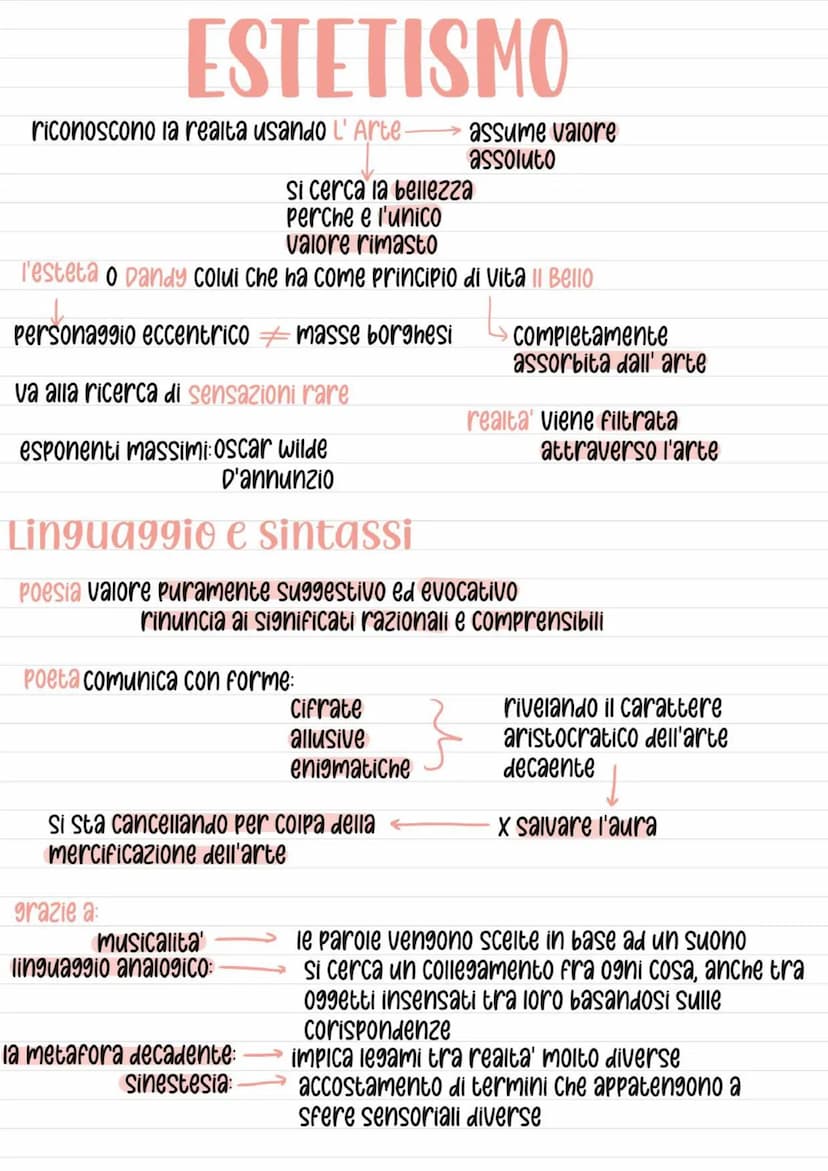 ESTETISMO
riconoscono la realta usando L' Arte → assume valore
assoluto
si cerca la bellezza
perche e l'unico
valore rimasto
l'esteta o Dandy colui che ha come principio di vita Il Bello
personaggio eccentrico ≠ masse borghesi
completamente
assorbita dall' arte
va alla ricerca di sensazioni rare
realta' viene filtrata
attraverso l'arte
esponenti massimi: oscar wilde
D'annunzio
Linguaggio e sintassi
poesia valore puramente suggestivo ed evocativo
rinuncia ai significati razionali e comprensibili
poeta comunica con forme:
cifrate
allusive
enigmatiche
rivelando il carattere
aristocratico dell'arte
decaente
x salvare l'aura
si sta cancellando per colpa della
mercificazione dell'arte
grazie a:
musicalita' → le parole vengono scelte in base ad un suono
linguaggio analogico: → si cerca un collegamento fra ogni cosa, anche tra
oggetti insensati tra loro basandosi sulle
corispondenze
la metafora decadente: → implica legami tra realta' molto diverse
sinestesia: → accostamento di termini che appatengono a
sfere sensoriali diverse